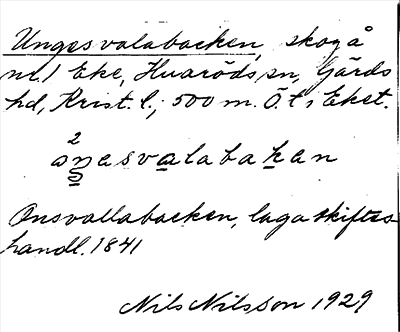 Ungesvalabacken, skog å
nr 1 Eke, Huaröds sn, Gärds
hd, Krist. l.; 500 m. Ö. t. s Eket.
2
åŋesvalabakan
Onsvallabacken, laga skiftes-
handl. 1841
Nils Nilsson 1929